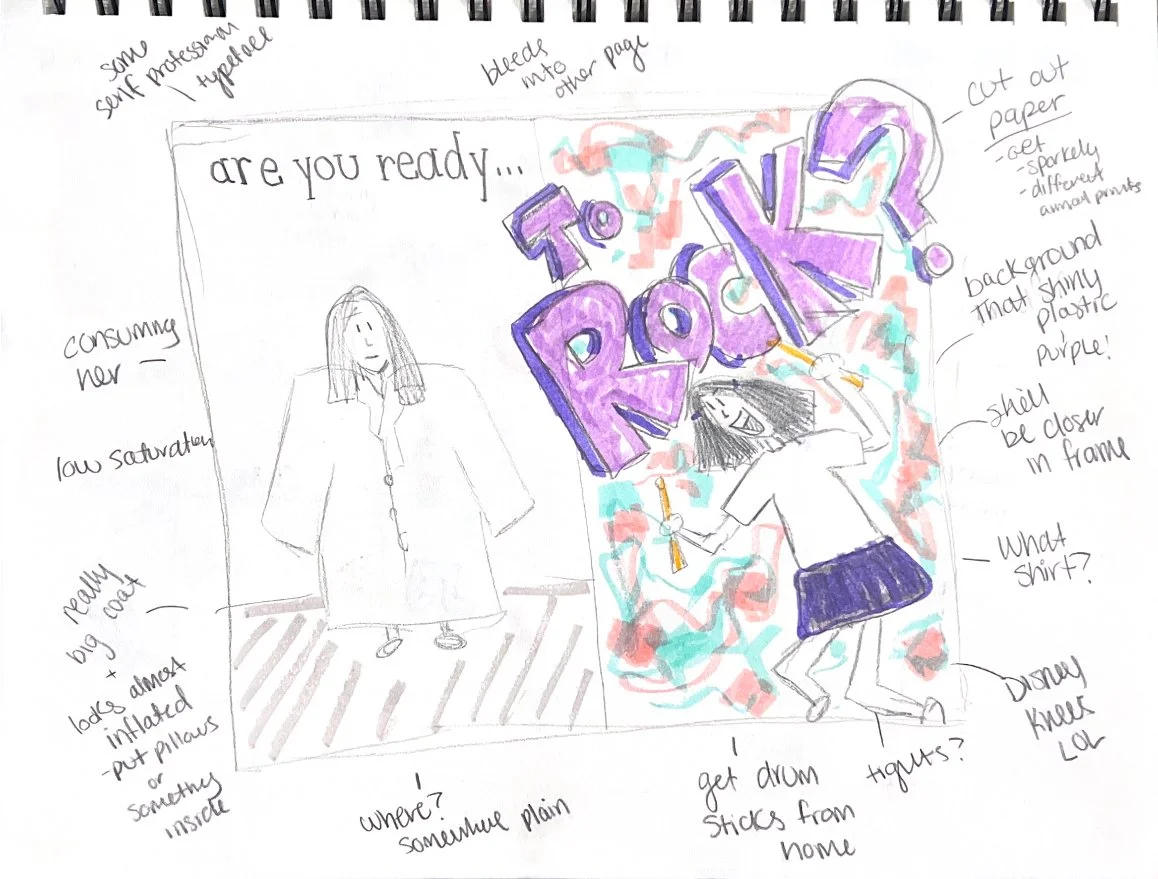 some
serif profession
typeface
bleeds
into
other page
cut out
paper
- get
- sparkely
- different
animal prints
are you ready...
TO
ROCK?
background
that shiny
plastic
purple!
consuming
her
low saturation
shell
be closer
in frame
What
shirt?
really
big coat
+
looks almost
inflated
- put pillows
or
something
inside
Disney
knees
LOL
where?
somewhere plain
get drum
sticks from
home
tights?